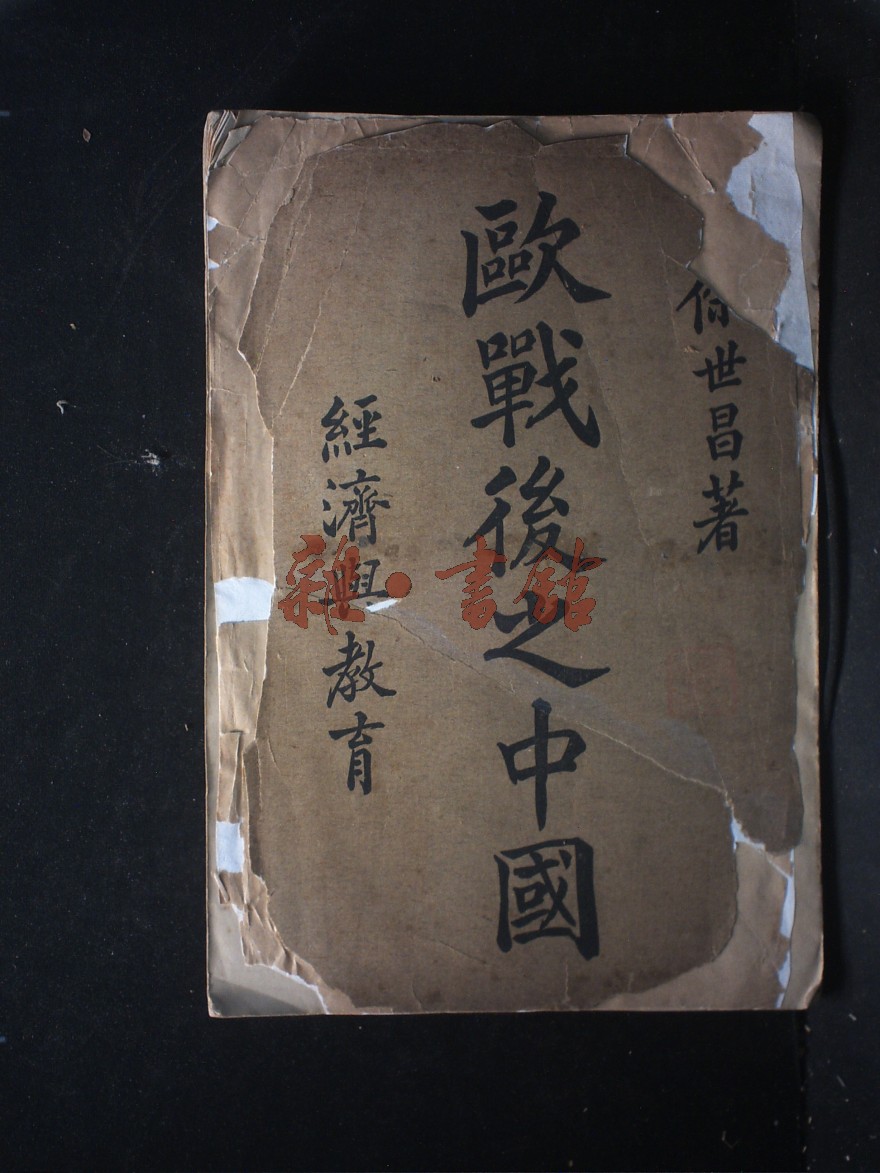 徐世昌著
歐戰後之中國
經濟與教育
雜·書館